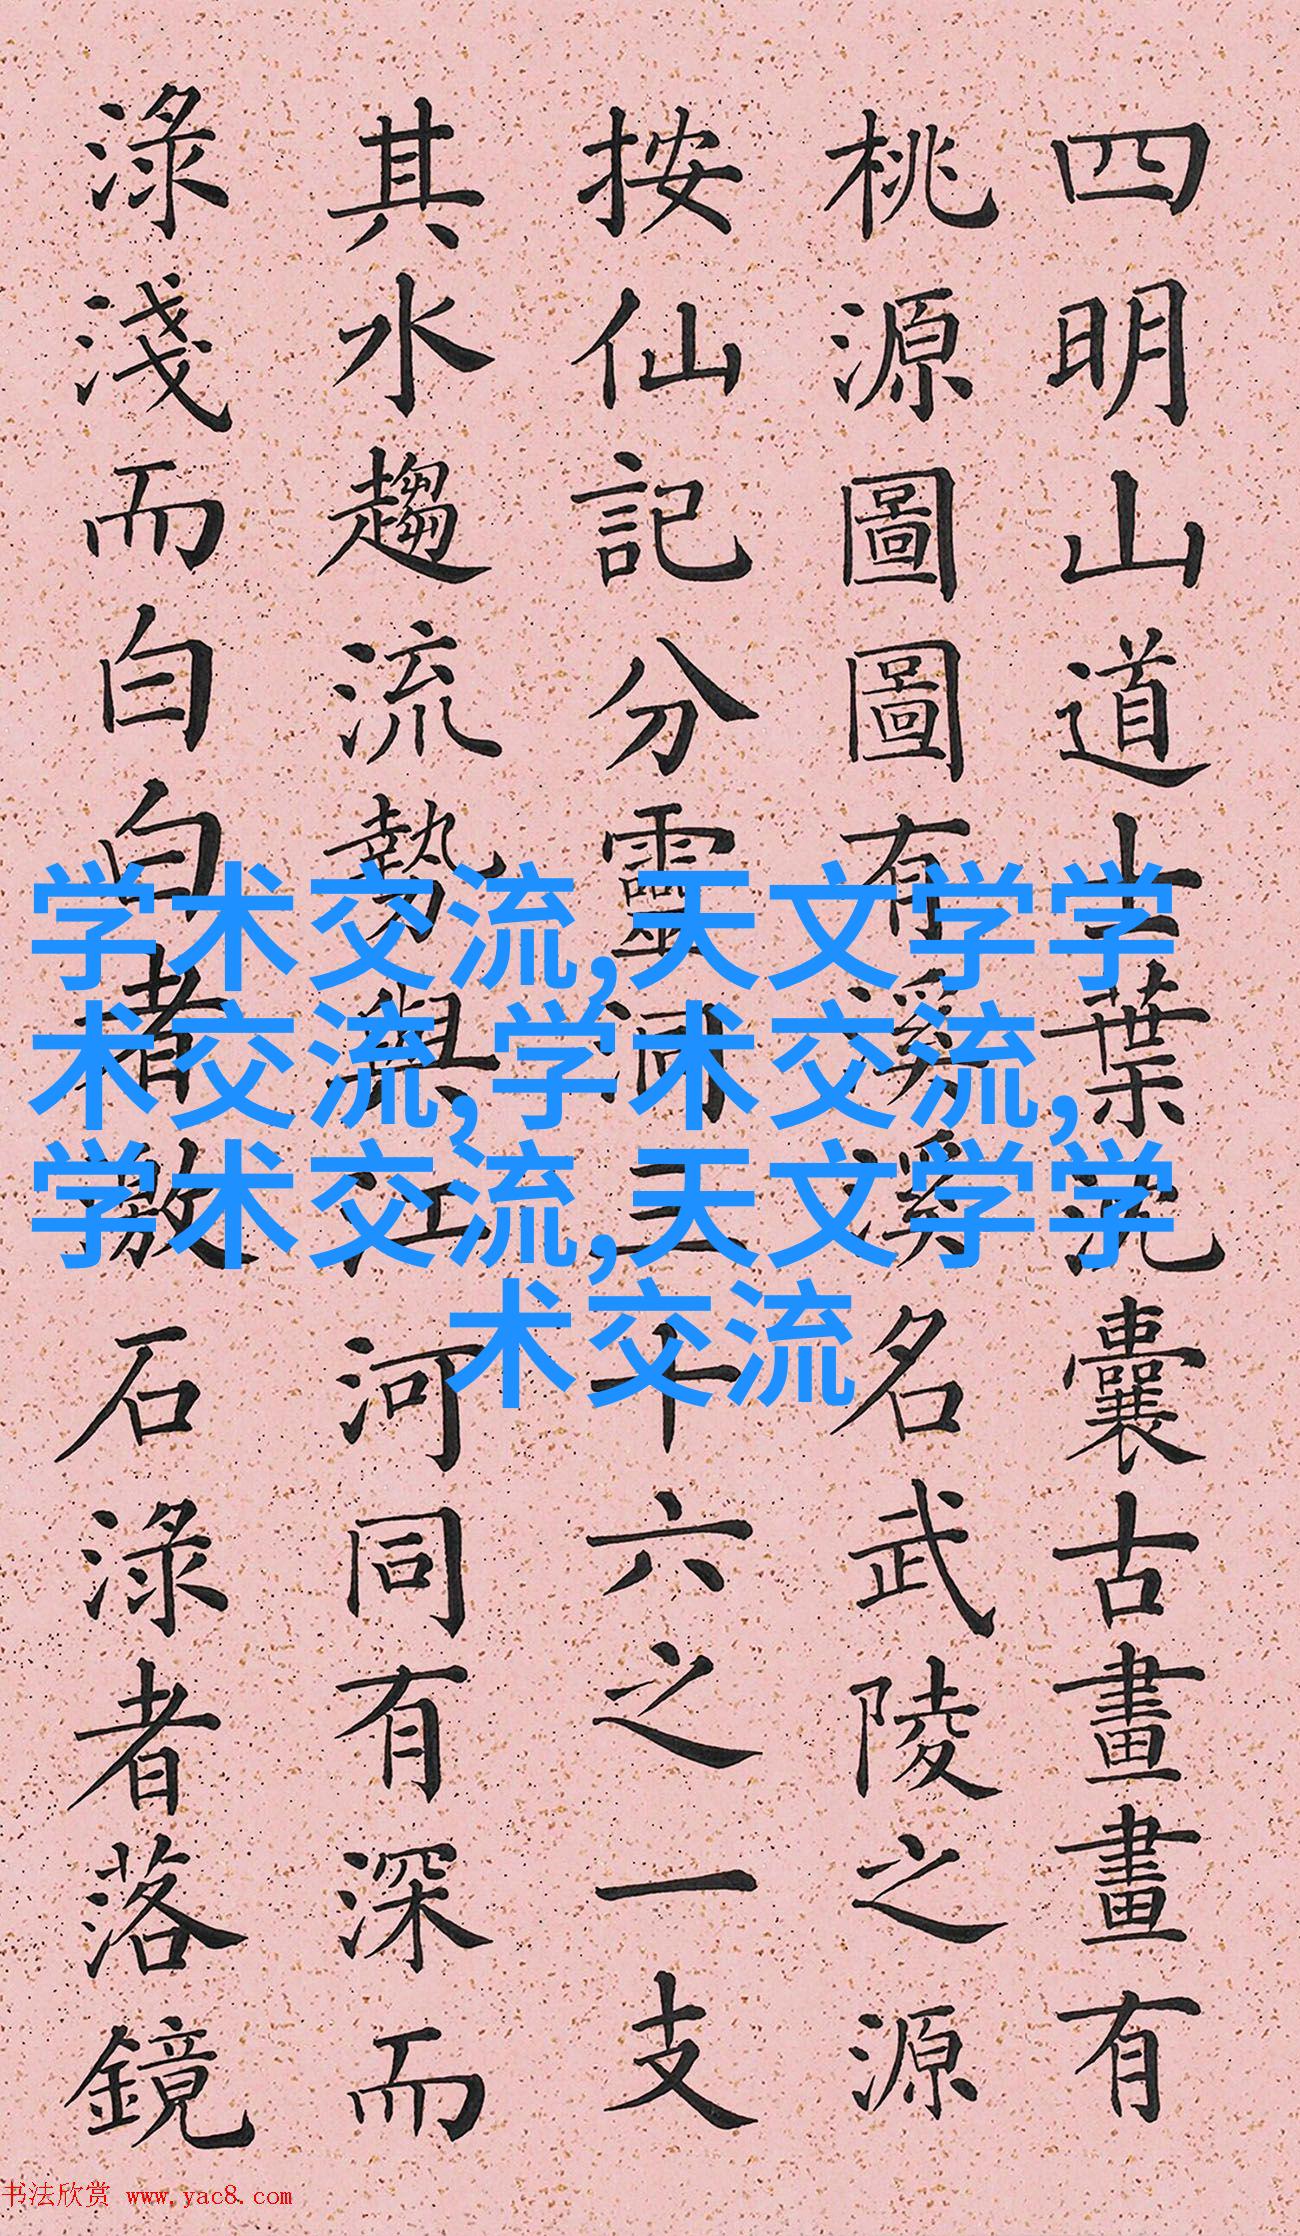 四明山道士葉沈囊古畫畫有
桃源圖圖有溪溪名武陵之源
按仙記分靈洞三十六之一支
其水趨流勢與江河同有深而
淥淺而白白者激石淥者落鏡
学术交流,天文学学
术交流,学术交流,
学术交流,天文学学
术交流
书法欣赏 www.yac8.com